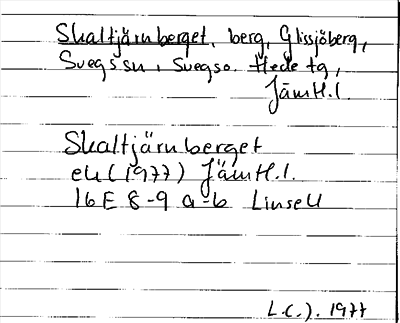 Skaltjärnberget, berg, Glissjöberg,
Svegs sn, Svegs o. Hede tg,
Jämtl. l.
Skaltjärnberget
ek (1977) Jämtl. l.
16 E 8-9 a-b Linsell
L.C.J. 1977